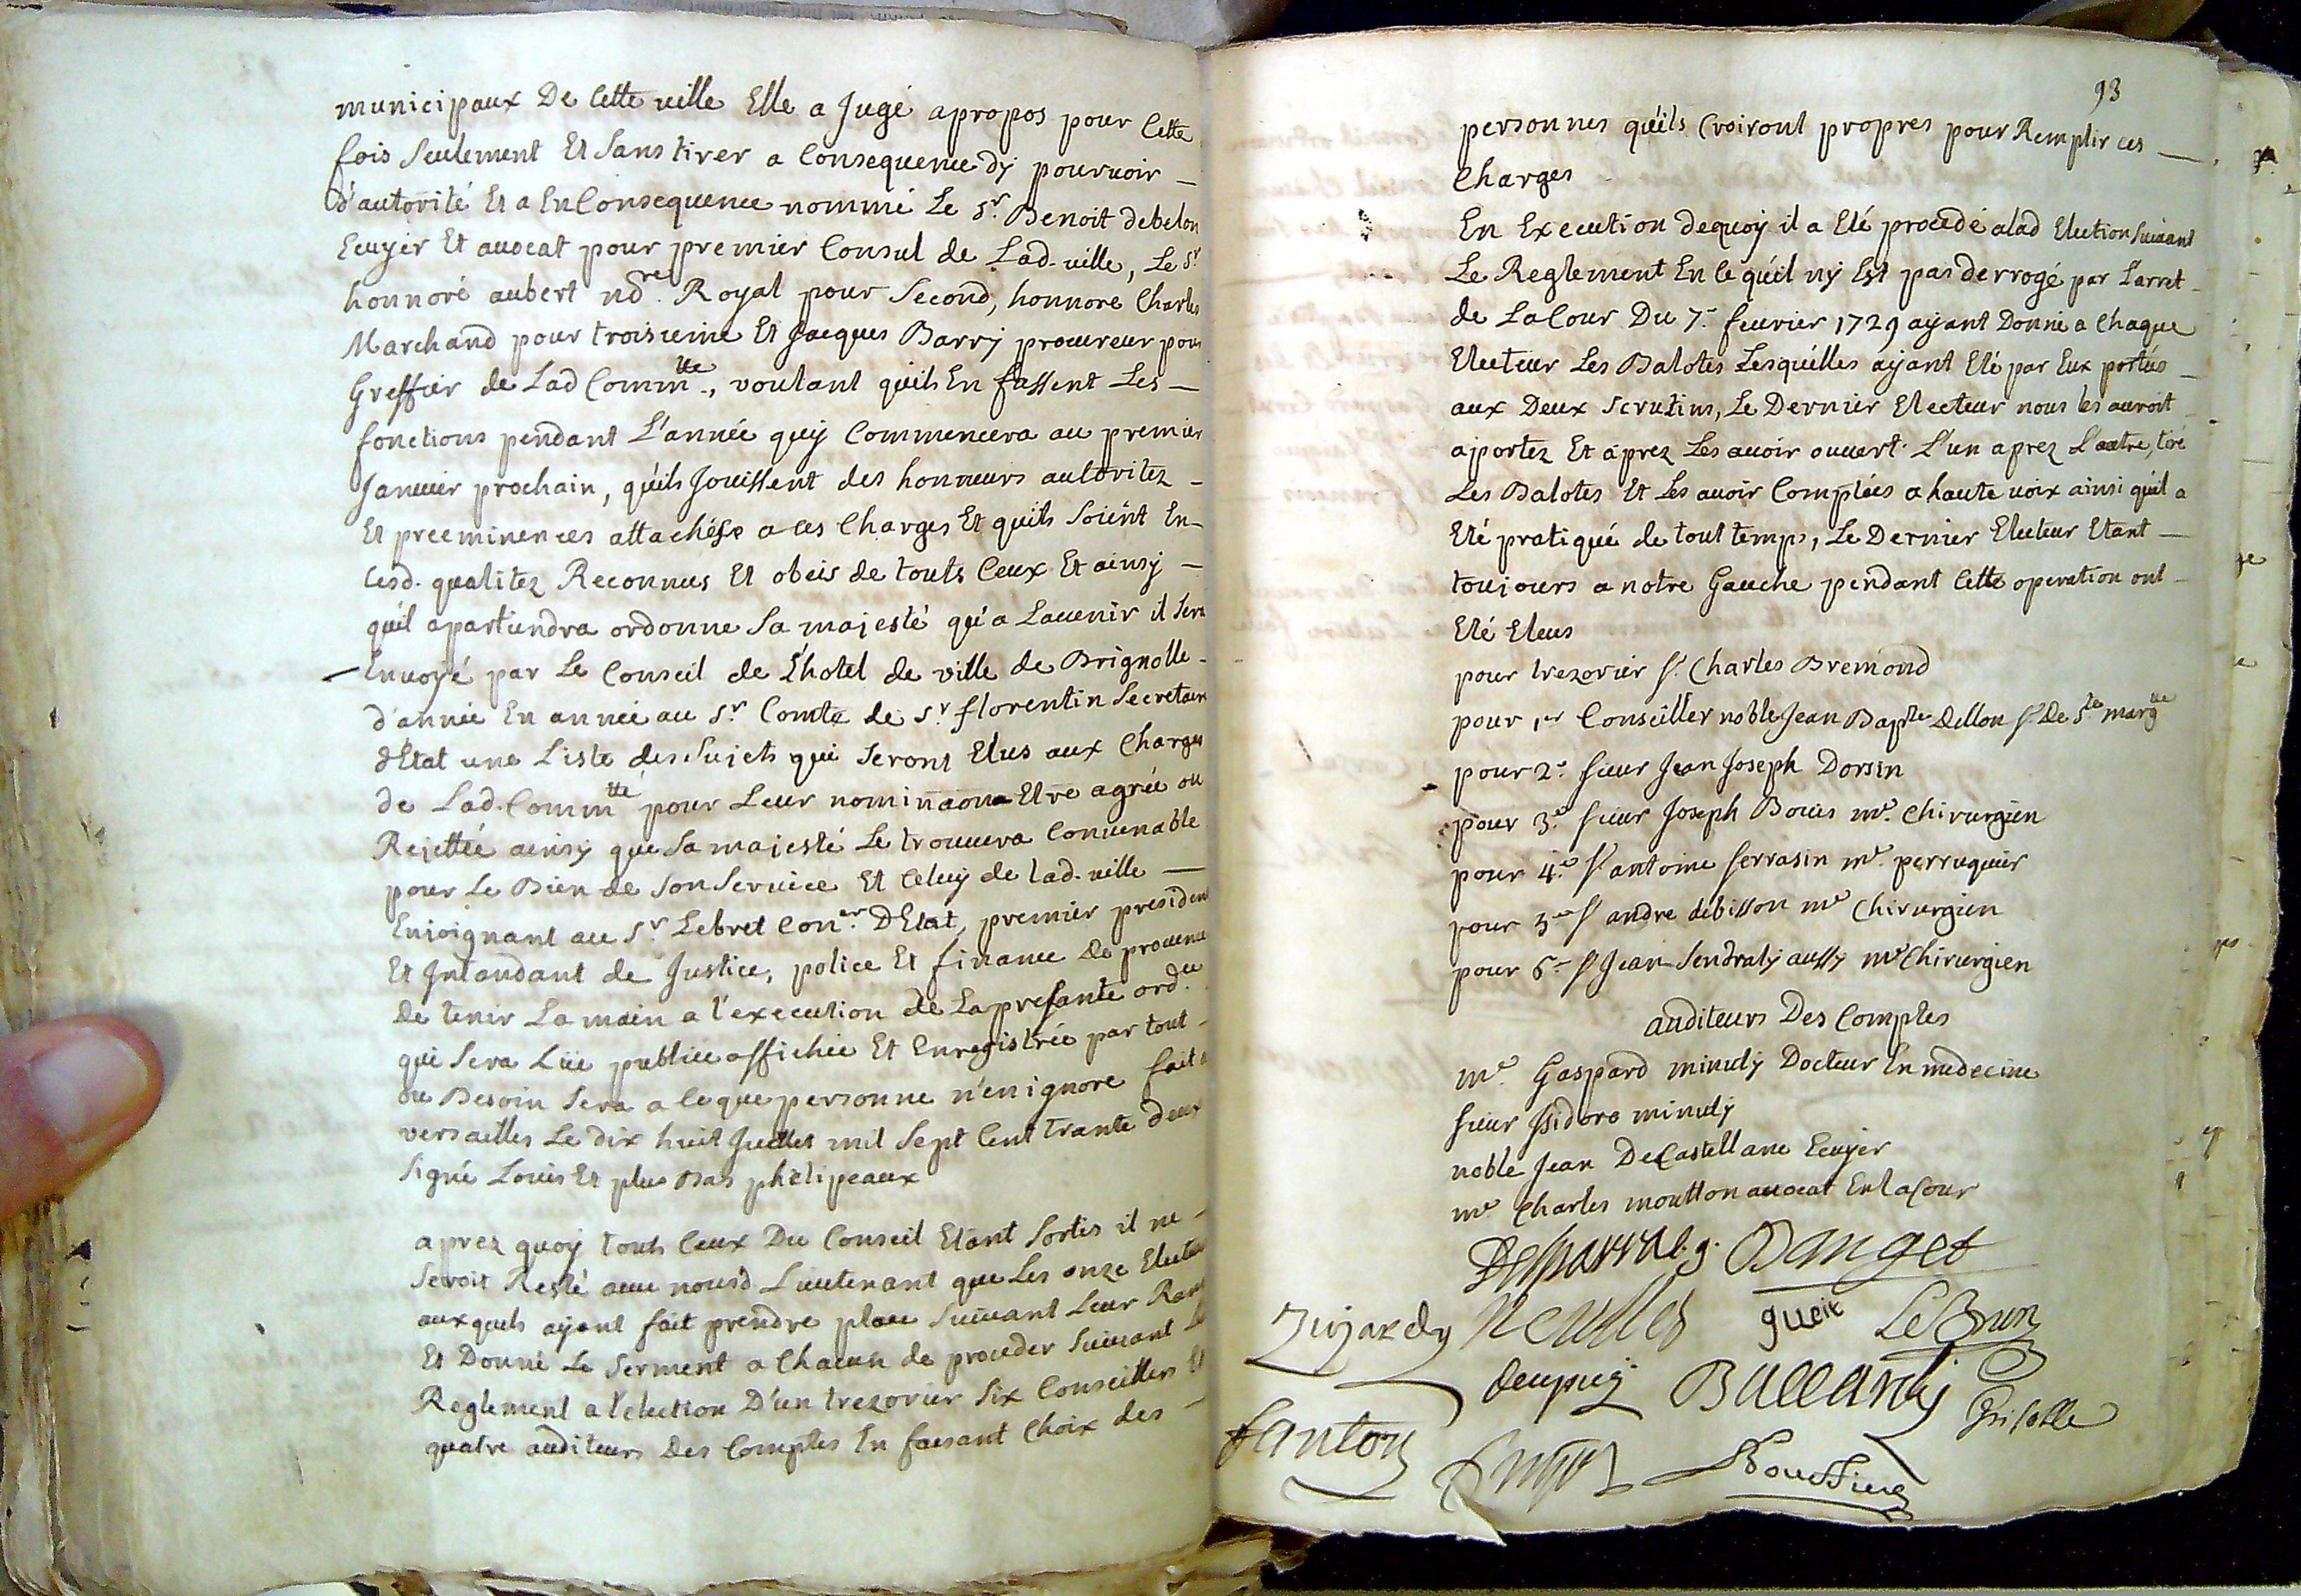 municipaux De Cette ville Elle a Jugé apropos pour Cette
fois Seulement Et Sans tirer a Consequence dy pourvoir
d'autorité Et a En Consequence nommé Le Sr. Benoit debelon
Ecuyer Et avocat pour premier Consul de Lad. ville, Le Sr
honnoré aubert ndre. Royal pour Second, honnore Charles
Marchand pour troisieme Et Jacques Barry procureur pour
Greffier de Lad Commtte., voulant quils En fassent Les
fonctions pendant L'année quy Commencera au premier
Januier prochain, qu'ils Jouissent des honneurs autoritez
Et preeminences attachées a ces Charges Et quils Soient En
Cesd. qualitez Reconnus Et obeis de touts Ceux Et ainsy
qu'il apartiendra ordonne Sa majesté qu'a Lauenir il Sera
Enuoyé par Le Conseil de L'hotel de ville de Brignolle
d'année En année au Sr. Comte de St. florentin Secretaire
dEtat une Liste des Sujets qui Seront Elus aux Charges
de Lad. Commtté pour Leur nominaon Etre agréé ou
Rejettée ainsy que Sa majesté Le trouuera Conuenable
pour Le Bien de Son Seruice Et Celuy de lad. ville
Enjoignant au Sr. Lebret Coner. DEtat, premier president
Et Intandant de Justice, police Et finance De prouence
De tenir La main a l'execution de La presante ord.ce
qui Sera Lüe publiée affichée Et Enregistrée par tout
ou Besoin Sera a Ce que personne n'en ignore fait a
versailles Le dix huit Juillet mil Sept Cent trante deux
Signé Louis Et plus Bas phelipeaux
aprez quoy touts Ceux Du Conseil Etant Sortis il ne
Seroit Resté auec nousd Lieutenant que Les onze Electeurs
auxquels ayant fait prendre place Suiuant Leur Rang
Et Donné Le Serment a Chacun de proceder Suiuant Le
Reglement a l'election D'un trezorier Six Conseillers Et
quatre auditeurs Des Comptes En faisant Choix des
93
personnes qu'ils Croiront propres pour Remplir ces
Charges
En Execution dequoy il a Eté procedé alad Election Suiuant
Le Reglement En Ce qu'il ny Est pas derrogé par L'arret
de La Cour Du 7e feurier 1729 ayant Donné a Chaque
Electeur Les Balotes Lesquelles ayant Eté par Eux portées
aux Deux Scrutins, Le Dernier Electeur nous les auroit
aportez Et aprez Les auoir ouuert L'un aprez L'autre, tiré
Les Balotes Et Les auoir Comptées a haute uoix ainsi qu'il a
Eté pratiqué de tout temps, Le Dernier Electeur Etant
toujours a notre Gauche pendant Cette operation ont
Eté Eleus
pour trezorier Sr. Charles Bremond
pour 1er Conseiller noble Jean Bapte Dellon Sr. De Ste margtte
pour 2e. Sieur Jean Joseph Dorsin
pour 3e. Sieur Joseph Bouis me. Chirurgien
pour 4e. Sr antoine Serrasin me. perruquier
pour 5me Sr andre debisson me Chirurgien
pour 6e Sr Jean Sendraly aussy me Chirurgien
auditeurs Des Comptes
me. Gaspard minuty Docteur En medecine
Sieur Isidore minuty
noble Jean De Castellane Ecuyer
me Charles moutton auocat En la Cour
Desparra l.g. Banget
Jujardy Neulles gueit LeBrun
deupuy Ballardy Grisolle
fanton Roustiny